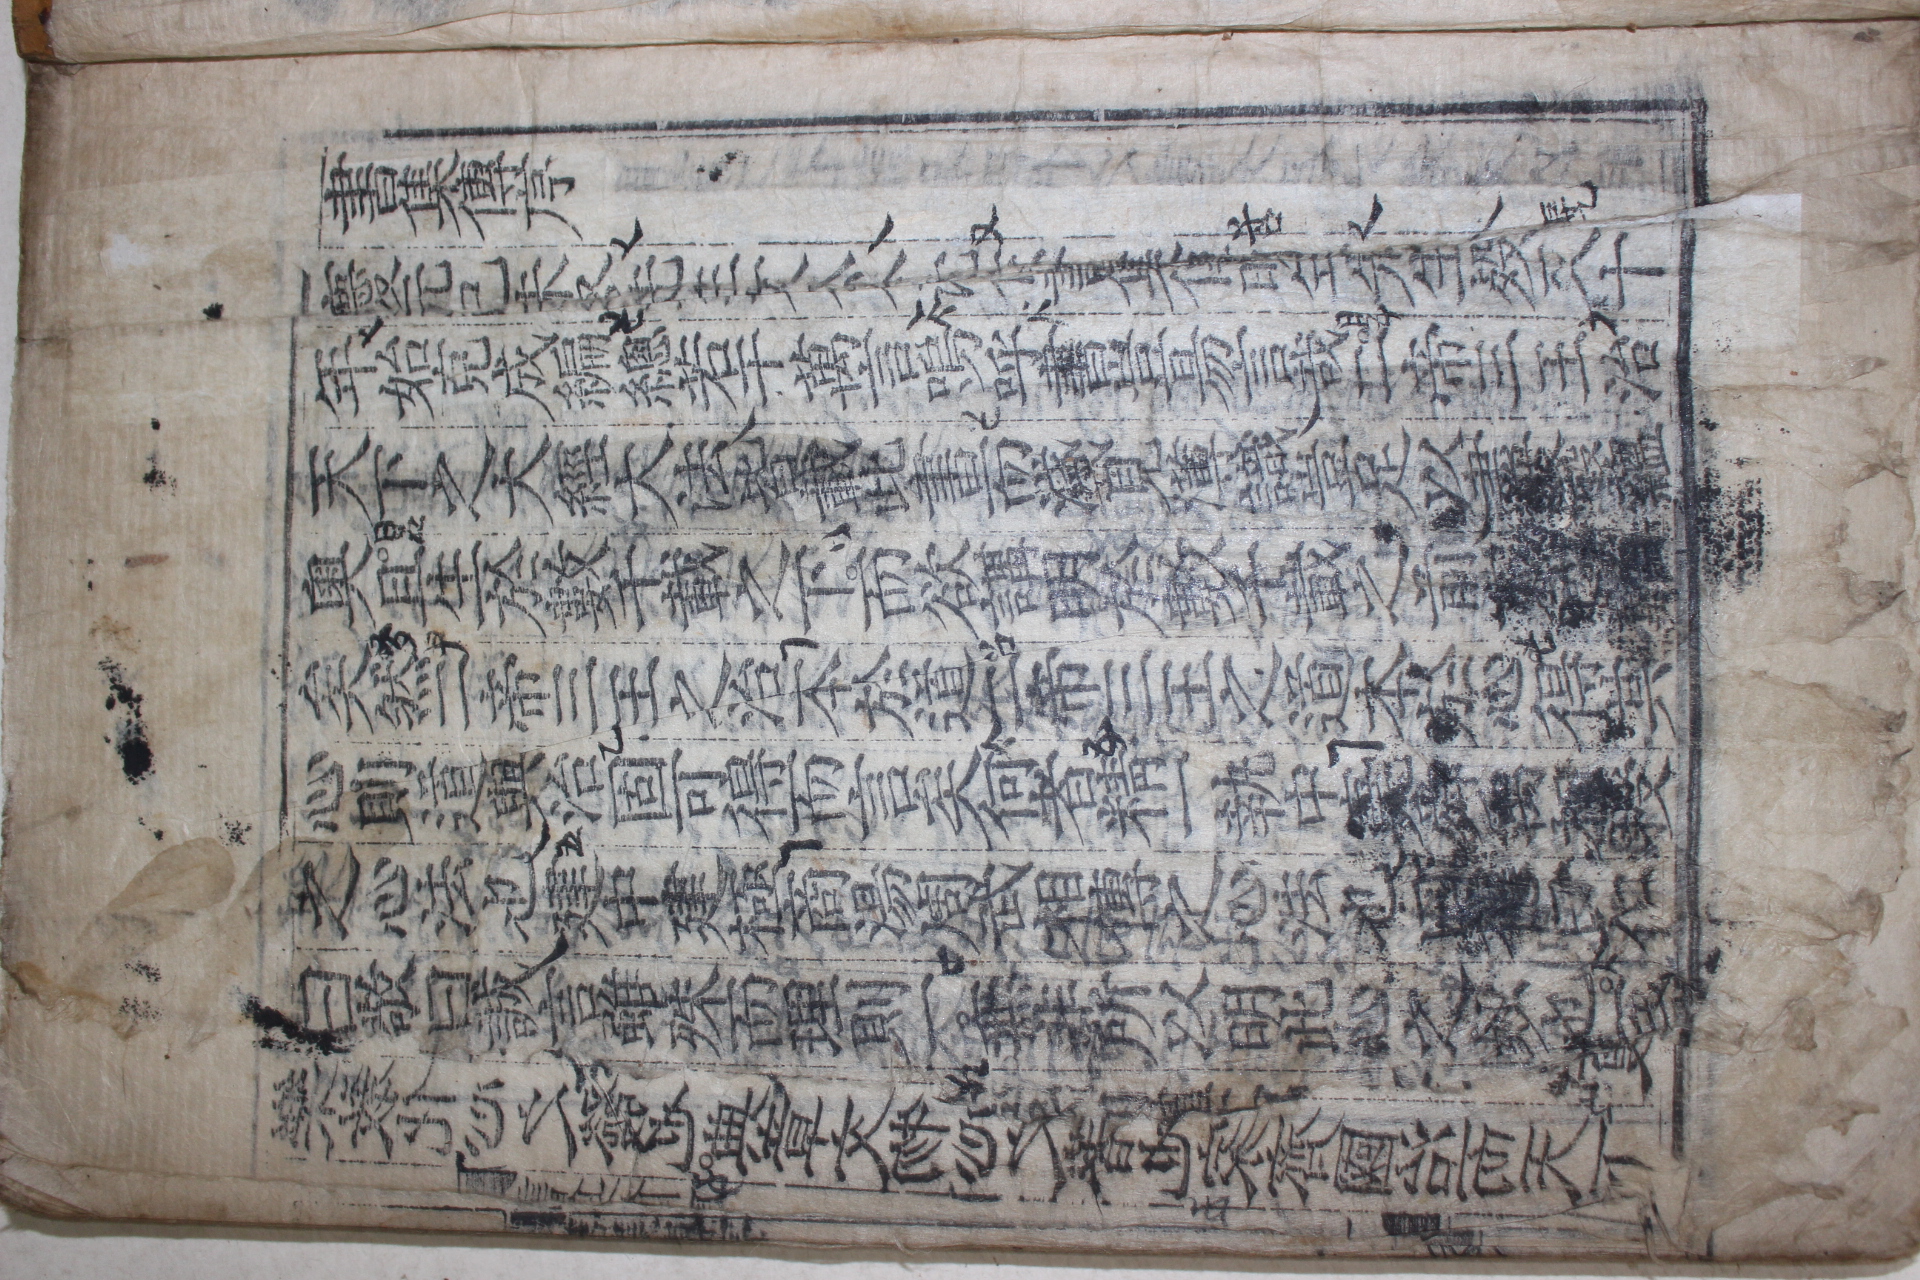 書集傳序
慶元己未冬先生文公令沈作書集傳明年先生歿又十
年始克成編總若干萬言嗚呼書豈易言哉二帝三王治
天下之大經大法皆載此書而淺見薄識豈足以盡發蘊
奧且生於數千載之下而欲講明於數千載之前亦已難
矣然二帝三王之治本於道二帝三王之道本於心得其
心則道與治固可得而言矣何者精一執中堯舜禹相授
之心法也建中建極商湯周武相傳之心法也曰德曰仁
曰敬曰誠言雖殊而理則一無非所以明此心之妙也至
禮樂教化心之發也典章文物心之著也家齊國治而天下